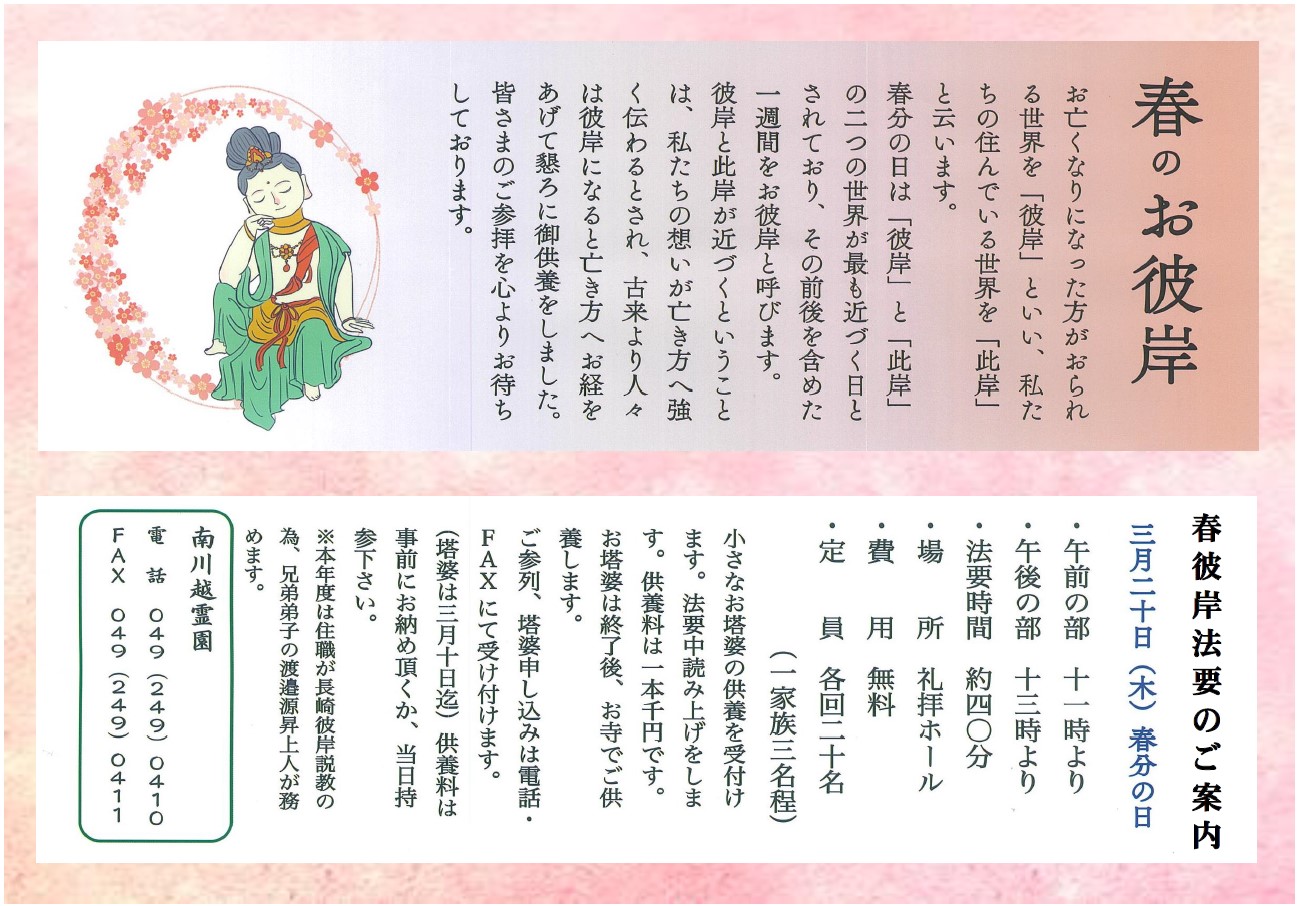 春のお彼岸
お亡くなりになった方がおられ
る世界を「彼岸」といい、私た
ちの住んでいる世界を「此岸」
と云います。
春分の日は「彼岸」と「此岸」
の二つの世界が最も近づく日と
されており、その前後を含めた
一週間をお彼岸と呼びます。
彼岸と此岸が近づくということ
は、私たちの想いが亡き方へ強
く伝わるとされ、古来より人々
は彼岸になると亡き方へお経を
あげて懇ろに御供養をしました。
皆さまのご参拝を心よりお待ち
しております。
春彼岸法要のご案内
三月二十日（木）春分の日
・午前の部　十一時より
・午後の部　十三時より
・法要時間　約四〇分
・場　　所　礼拝ホール
・費　　用　無料
・定　　員　各回二十名
（一家族三名程）
小さなお塔婆の供養を受付け
ます。法要中読み上げをしま
す。供養料は一本千円です。
お塔婆は終了後、お寺でご供
養します。
ご参列、塔婆申し込みは電話・
FAXにて受け付けます。
（塔婆は三月十日迄）供養料は
事前にお納め頂くか、当日持
参下さい。
※本年度は住職が長崎彼岸説教の
為、兄弟弟子の渡邉源昇上人が務
めます。
南川越霊園
電　話　049（249）0410
FAX　049（249）0411